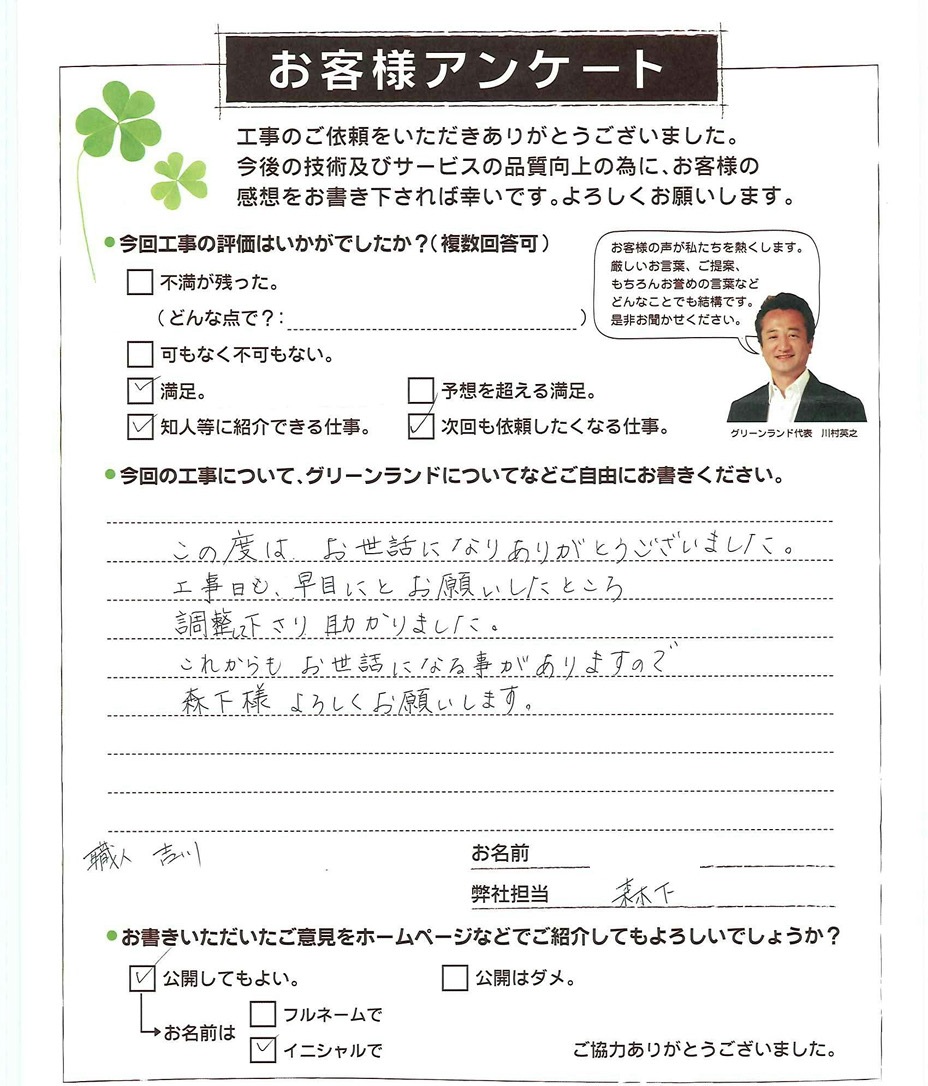 お客様アンケート
工事のご依頼をいただきありがとうございました。
今後の技術及びサービスの品質向上の為に、お客様の
感想をお書き下されば幸いです。よろしくお願いします。
今回工事の評価はいかがでしたか？（複数回答可）
お客様の声が私たちを熱くします。
厳しいお言葉、ご提案、
もちろんお誉めの言葉など
どんなことでも結構です。
是非お聞かせください。
不満が残った。
（どんな点で？：　）
可もなく不可もない。
満足。　予想を超える満足。
知人等に紹介できる仕事。　次回も依頼したくなる仕事。
グリーンランド代表　川村英之
今回の工事について、グリーンランドについてなどご自由にお書きください。
この度は お世話になりありがとうございました。
工事日も、早目にと お願いしたところ
調整して下さり 助かりました。
これからも お世話になる事がありますので
森下様 よろしくお願いします。
職人 吉川　お名前
弊社担当　森下
お書きいただいたご意見をホームページなどでご紹介してもよろしいでしょうか？
公開してもよい。　公開はダメ。
お名前は　フルネームで
イニシャルで　ご協力ありがとうございました。